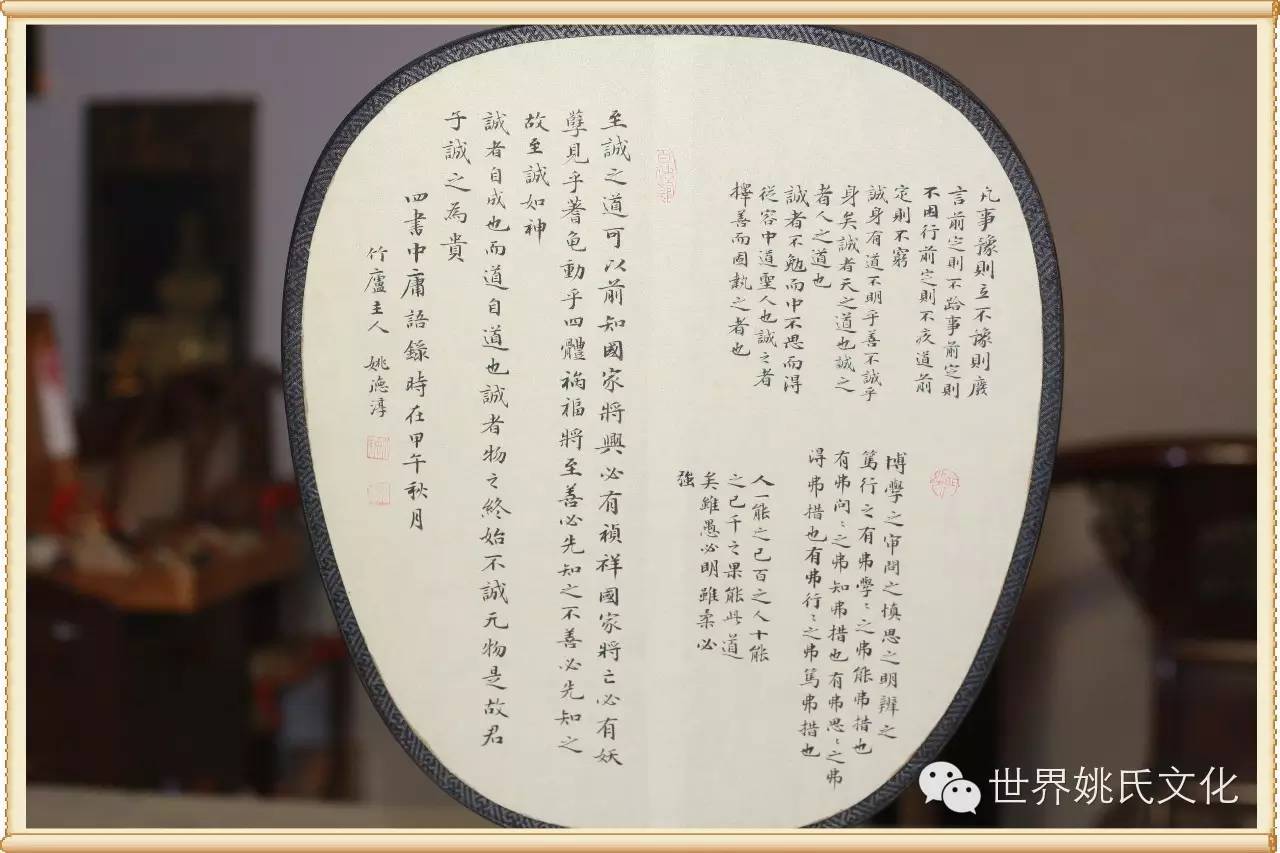 凡事豫則立不豫則廢
言前定則不跲事前定則
不困行前定則不疚道前
定則不窮
誠身有道不明乎善不誠乎
身矣誠者天之道也誠之
者人之道也
誠者不勉而中不思而得
從容中道聖人也誠之者
擇善而固執之者也
博學之審問之慎思之明辨之
篤行之有弗學〻之弗能弗措也
有弗問〻之弗知弗措也有弗思〻之弗
得弗措也有弗行〻之弗篤弗措也
人一能之己百之人十能
之己千之果能此道
矣雖愚必明雖柔必
強
至誠之道可以前知國家將興必有禎祥國家將亡必有妖
孽見乎蓍龜動乎四體禍福將至善必先知之不善必先知之
故至誠如神
誠者自成也而道自道也誠者物之終始不誠无物是故君
子誠之為貴
四書中庸語錄時在甲午秋月
竹廬主人 姚德淳
世界姚氏文化